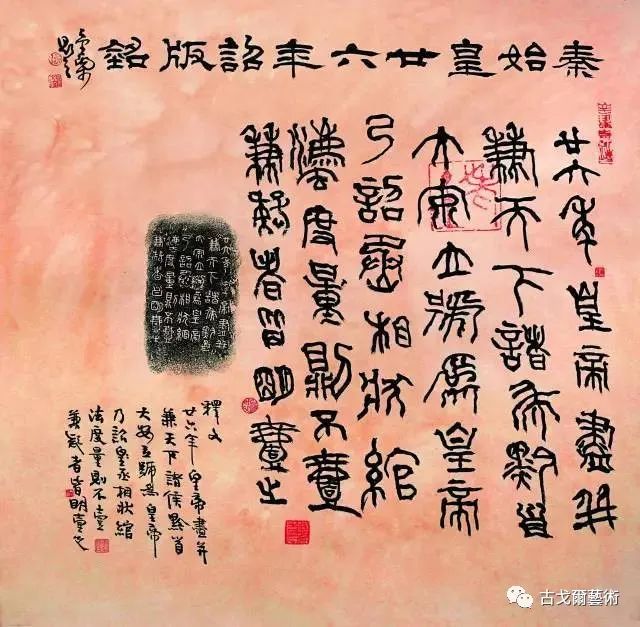 秦始皇廿六年詔版銘
廿六年皇帝盡并
兼天下諸侯黔首
大安立號爲皇帝
乃詔丞相狀綰
灋度量則不壹
歉疑者皆明壹之
釋文
廿六年皇帝盡并
兼天下諸侯黔首
大安立號為皇帝
乃詔皇丞相狀綰
法度量則不壹
兼疑者皆明壹之
古戈爾藝術